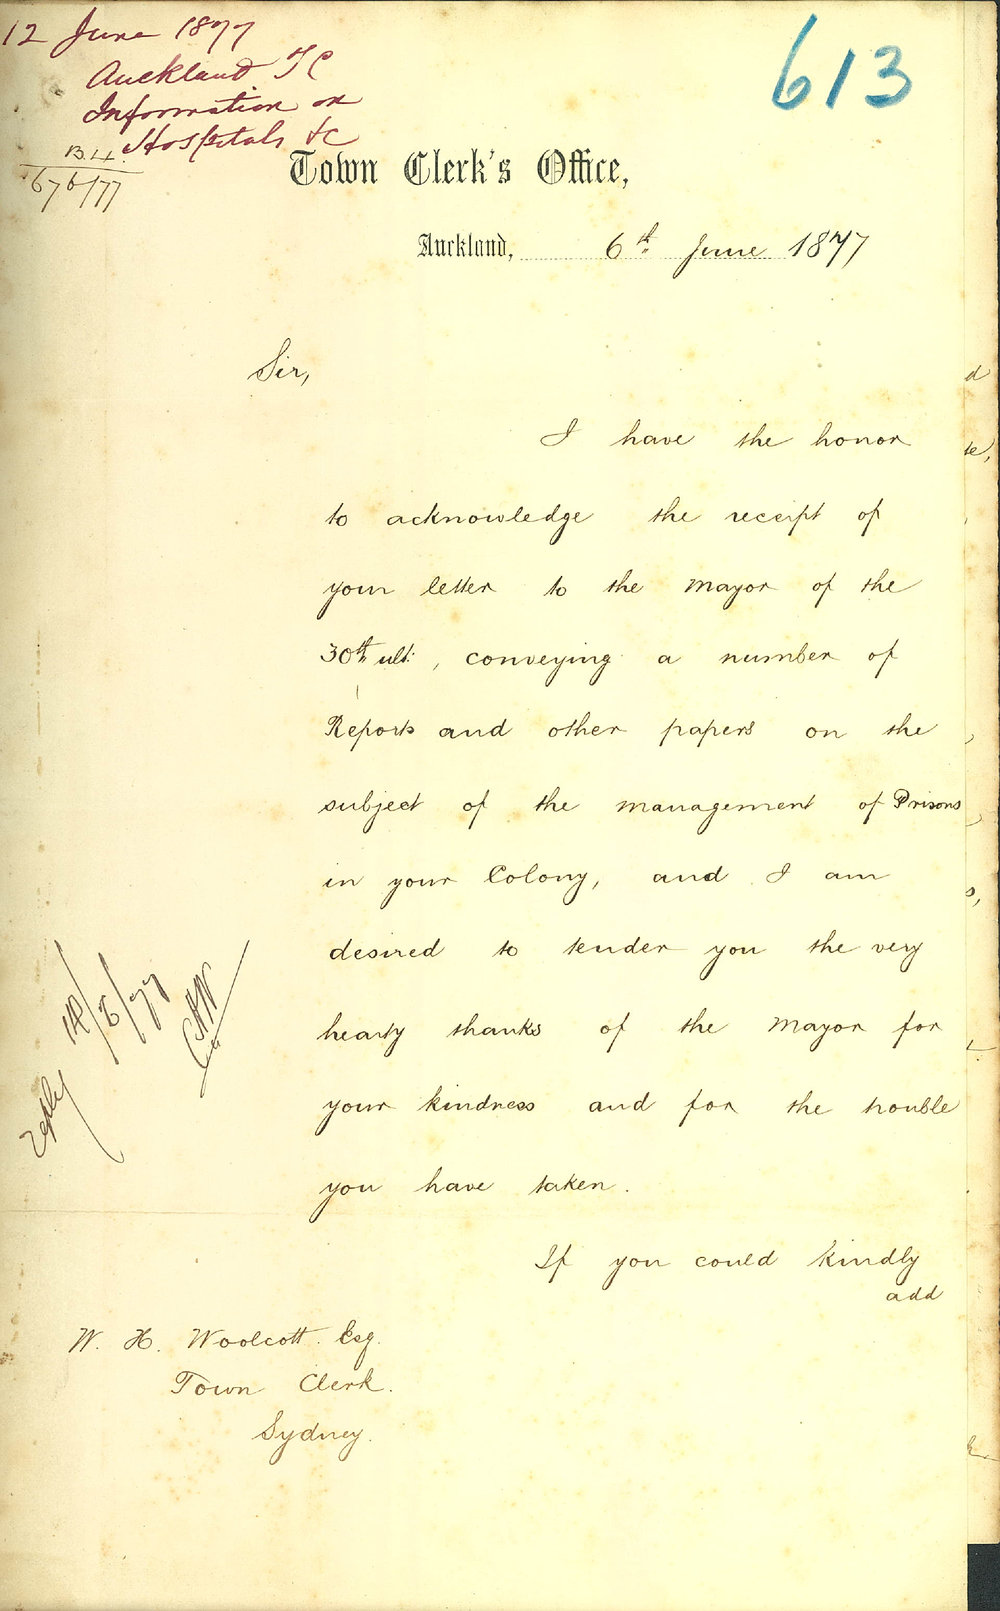 12 June 1877
Auckland TC
Information on
Hospitals &c
676/77
613
Town Clerk's Office,
Auckland, 6th June 1877
Sir,
I have the honor
to acknowledge the receipt of
your letter to the Mayor of the
30th ult:, conveying a number of
Reports and other papers on the
subject of the management of Prisons
in your Colony, and I am
desired to tender you the very
hearty thanks of the Mayor for
your kindness and for the trouble
you have taken.
If you could kindly
add
reply 14/6/77
W. H. Woolcott Esq.
Town Clerk.
Sydney.